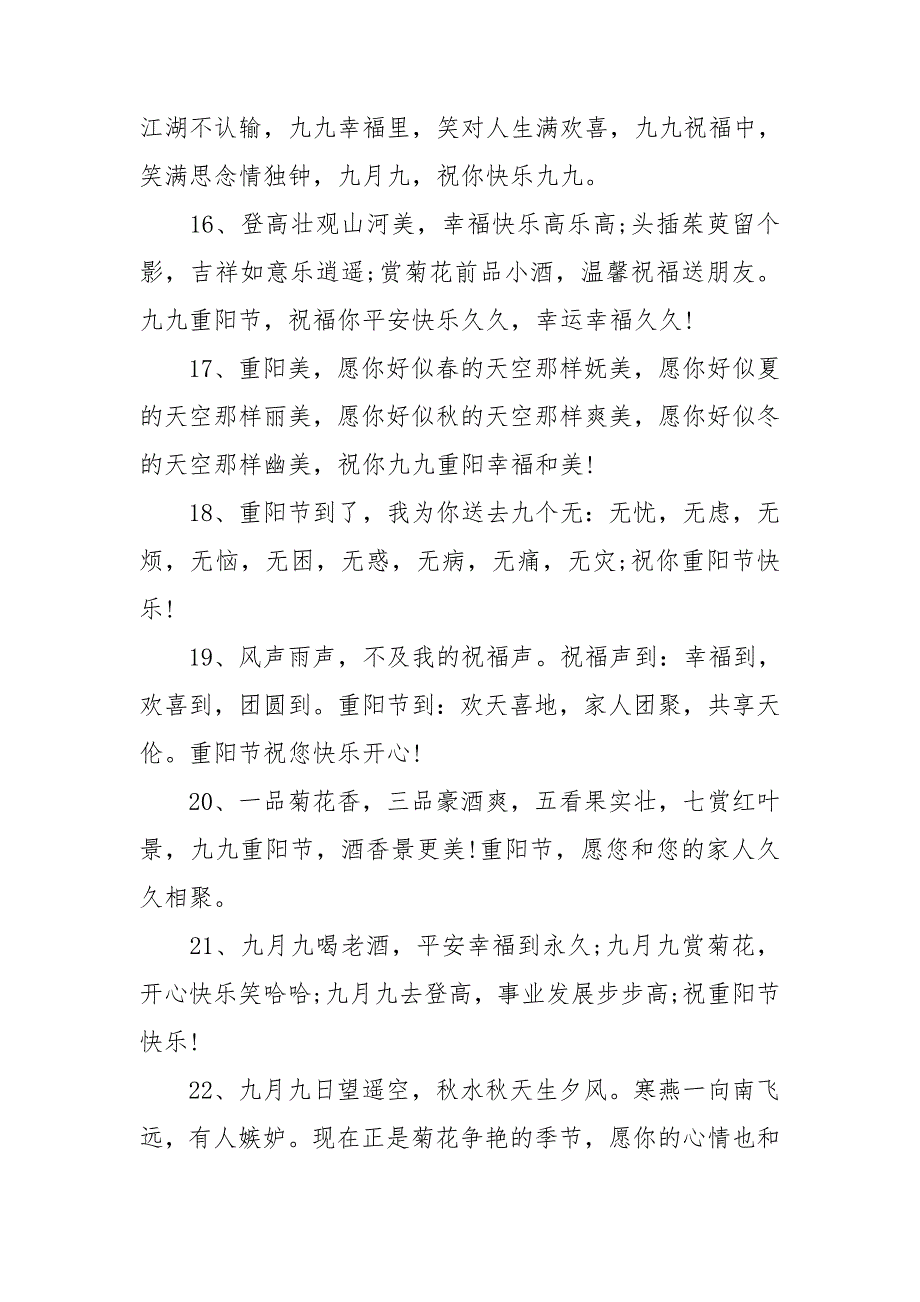 江湖不认输，九九幸福里，笑对人生满欢喜，九九祝福中，
笑满思念情独钟，九月九，祝你快乐九九。
16、登高壮观山河美，幸福快乐高乐高;头插茱萸留个
影，吉祥如意乐逍遥;赏菊花前品小酒，温馨祝福送朋友。
九九重阳节，祝福你平安快乐久久，幸运幸福久久!
17、重阳美，愿你好似春的天空那样妩美，愿你好似夏
的天空那样丽美，愿你好似秋的天空那样爽美，愿你好似冬
的天空那样幽美，祝你九九重阳幸福和美!
18、重阳节到了，我为你送去九个无：无忧，无虑，无
烦，无恼，无困，无惑，无病，无痛，无灾;祝你重阳节快
乐!
19、风声雨声，不及我的祝福声。祝福声到：幸福到，
欢喜到，团圆到。重阳节到：欢天喜地，家人团聚，共享天
伦。重阳节祝您快乐开心!
20、一品菊花香，三品豪酒爽，五看果实壮，七赏红叶
景，九九重阳节，酒香景更美!重阳节，愿您和您的家人久
久相聚。
21、九月九喝老酒，平安幸福到永久;九月九赏菊花，
开心快乐笑哈哈;九月九去登高，事业发展步步高;祝重阳节
快乐!
22、九月九日望遥空，秋水秋天生夕风。寒燕一向南飞
远，有人嫉妒。现在正是菊花争艳的季节，愿你的心情也和